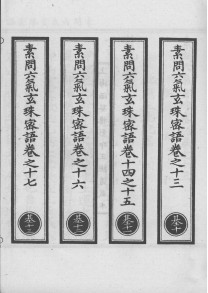 素問六氣玄珠密語卷之十三
素問六氣玄珠密語卷十四之十五
素問六氣玄珠密語卷之十六
素問六氣玄珠密語卷之十七